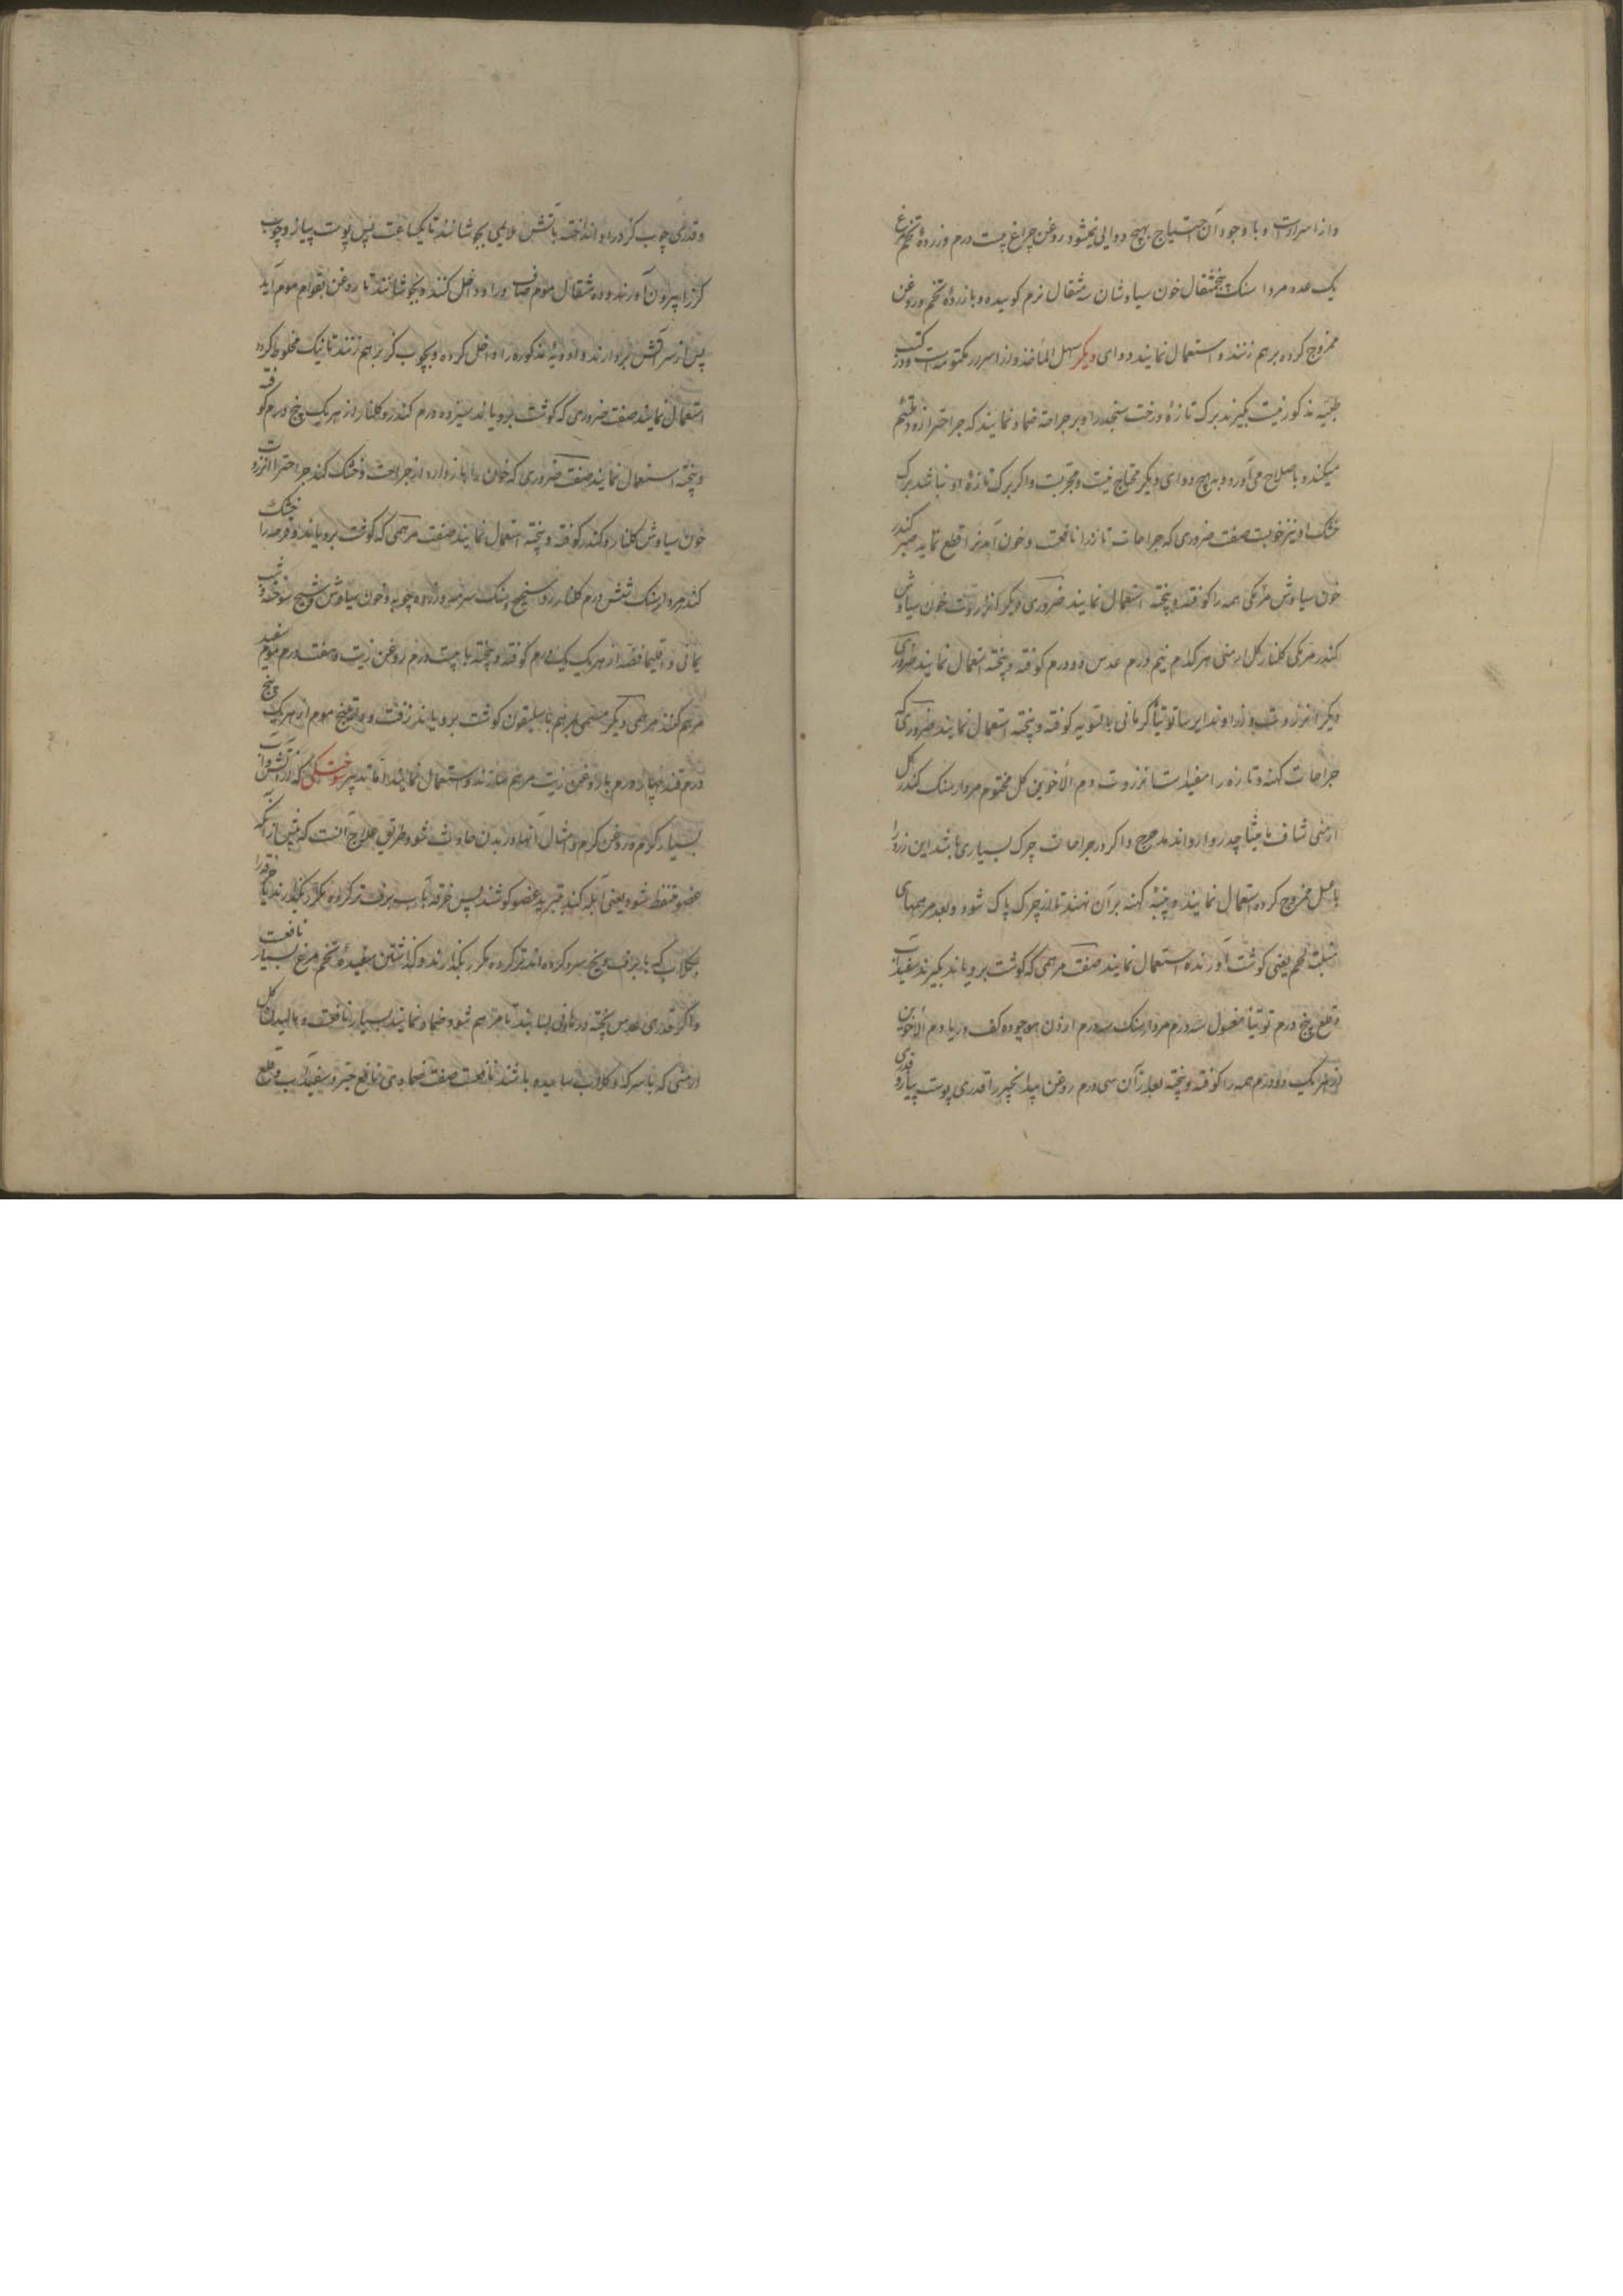 و از اسرارست و با وجود آن احتیاج بهیچ دوایی نمیشود روغن چراغ بیست درم و زردهٔ تخم مرغ
یک عدد مردا سنک پنجمثقال خون سیاوشان سه مثقال نرم کوبیده و با زردهٔ تخم و روغن
ممزوج کرده برهم زنند و استعمال نمایند دوای دیکر سهل المأخذ و از اسرار مکتومه است و در کتب
طبیه مذکور نیست بکیرند برک تازهٔ درخت سنجد را و بر جراحة ضماد نمایند که جراحترا زود ملتئم
میکند و باصلاح می آورد و بهیچ دوای دیکر محتاج نیست و مجربست و اکر برک تازهٔ او نباشد برک
خشک او نیز خوبست صفت ضروری که جراحات تازه را نافعست و خون آمدنرا قطع نماید صبر کندر
خون سیاوش مرمکی همه را کوفته و پخته استعمال نمایند ضروری دیکر انزروت خون سیاوش
کندر مرمکی کلنار کل ارمنی هر کدام نیم درم عدس دو درم کوفته و پخته استعمال نمایند ضروری
دیکر انزروت و زراوند ایرسا توتیأ کرمانی بالسویه کوفته و پخته استعمال نمایند ضروری که
جراحات کهنه و تازه را مفید است انزروت دم الأخوین کل مختوم مردار سنک کندر کل
ارمنی شاف مامیثا زراوند مدحرج و اکر در جراحات چرک بسیاری باشد این زرور را
با عسل ممزوج کرده استعمال نمایند و پنبهٔ کهنه بر آن نهند تا از چرک پاک شود و بعد مرهمهای
منبت لحم یعنی کوشت آورنده استعمال نمایند صفت مرهمی که کوشت برویاند بکیرند سفیداب
قلع پنج درم توتیأ مغسول سه درم مردار سنک سه درم کف دریا دم الأخوین
از هر یک دو درم همه را کوفته و پخته بعد از آن سی درم روغن بیدانجیر را قدری پوست پیاز و قدری
و قدری چوب کز در او انداخته بآتش ملایمی بجوشانند تا یکساعت پس پوست پیاز و چوب
کز را بیرون آورند و ده مثقال موم صاف در او داخل کنند و بجوشانند تا روغن بقوام موم آید
پس از سر آتش بردارند و ادویهٔ مذکوره را داخل کرده و بچوب کز برهم زنند تا نیک مخلوط کردد
استعمال نمایند صفت ضروری که کوشت برویاند سیزده درم کندر و کلنار از هر یک پنج درم کوفته
و پخته استعمال نمایند صفت ضروری که خون را باز دارد از جراحت و خشک کند جراحترا انزروت
خون سیاوش کلنار و کندر کوفته و پخته استعمال نمایند صفت مرهمی که کوشت برویاند و قرحه را خشک
کند مردارسنک شش درم کلنار سنک سرمه و زرده چوبه و خون سیاوش سوخته و شب
یمانی و اقلیما فضه از هر یک یک درم کوفته و پخته با بیست درم روغن زیت و هفت درم موم سفید
مرهم کنند مرهمی دیکر مسمی بمرهم باسلیقون کوشت برویاند زفت و راتینج موم از هر یک پنج
درم قند چهار درم با روغن زیت مرهم سازند و استعمال نمایند اما تدبیر سوختکی که از آتش و از آب
بسیار کرم و روغن کرم و امثال آنها در بدن حادث شود طریق علاج آنست که پیش از آنکه
عضو متنفط شود یعنی آبله کند تبرید عضو کوشند پس خرقه بآب برف تر کرده مکرر بکذارند یا خرقه را
بکلاب که با برف و یخ سرد کرده اند تر کرده مکرر بکذارند و کذاشتن سفیدهٔ تخم مرغ بسیار نافعست
و اکر قدری عدس پخته در هاون بسایند تا مرهم شود و ضماد نمایند بسیار نافعست و مالیدن کل
ارمنی که با سرکه و کلاب سائیده باشند نافعست صفت ضمادی نافع سفیداب قلع